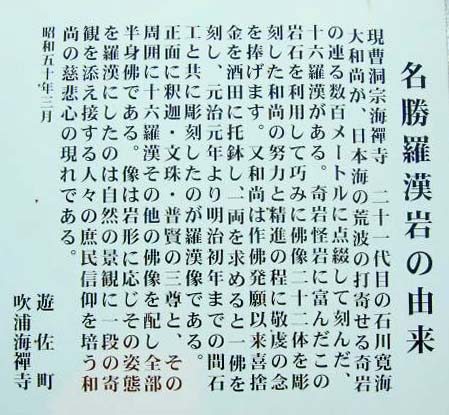 名勝羅漢岩の由来
現曹洞宗海禪寺 二十一代目の石川寛海
大和尚が、日本海の荒波の打寄せる奇岩
の連る数百メートルに点綴して刻んだ、
十六羅漢がある。奇岩怪岩に富んだこの
岩石を利用して巧みに佛像二十二体を彫
刻した和尚の努力と精進の程に敬虔の念
を捧げます。又和尚は作佛発願以来喜捨
金を酒田に托鉢し、一両を求めると一佛を
刻し、元治元年より明治初年までの間石
工と共に彫刻したのが羅漢像である。
正面に釈迦・文珠・普賢の三尊と、その
周囲に十六羅漢その他の佛像を配し全部
半身佛である。像は岩形に応じその姿態
を羅漢にしたのは自然の景観に一段の奇
観を添え接する人々の庶民信仰を培う和
尚の慈悲心の現れである。
昭和五十年三月
遊佐町
吹浦海禪寺